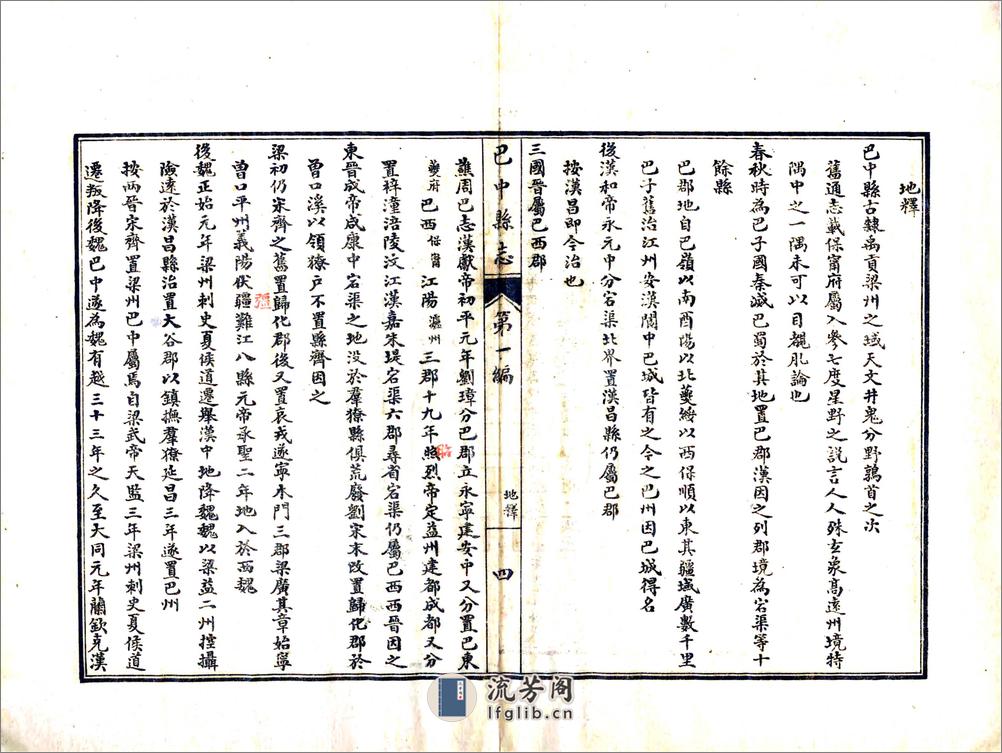 地釋
巴中縣古隸禹貢梁州之域天文井鬼分野鶉首之次
舊通志載保甯府屬入參七度星野之説言人人殊玄象高遠州境特
隅中之一隅未可以目覩肊論也
春秋時為巴子國秦滅巴蜀於其地置巴郡漢因之列郡境為宕渠等十
餘縣
巴郡地自巴嶺以南酉陽以北夔綏以西保順以東其疆域廣數千里
巴子舊治江州安漢閬中巴城皆有之今之巴州因巴城得名
後漢和帝永元中分宕渠北界置漢昌縣仍屬巴郡
按漢昌即今治也
三國晉屬巴西郡
巴中縣志
第一編
地釋
四
譙周巴志漢獻帝初平元年劉璋分巴郡立永寧建安中又分置巴東
夔府巴西保甯江陽瀘州三郡十九年照烈帝定益州建都成都又分
昭
置梓潼涪陵汶江漢嘉朱堤宕渠六郡尋省宕渠仍屬巴西西晉因之
東晉成帝咸康中宕渠之地没於羣獠縣俱荒廢劉宋末改置歸化郡於
曾口溪以領獠户不置縣齊因之
梁初仍宋齊之舊置歸化郡後又置哀戎遂寧木門三郡梁廣其章始寧
曾口平州義陽伏疆難江八縣元帝承聖二年地入於西魏
彊
後魏正始元年梁州刺史夏侯道遷舉漢中地降魏魏以梁益二州控攝
險遠於漢昌縣治置大谷郡以鎮撫羣獠延昌三年遂置巴州
按兩晉宋齊置梁州巴中屬焉自梁武帝天監三年梁州刺史夏侯道
遷叛降後魏巴中遂為魏有越三十三年之久至大同元年蘭欽克漢
流芳阁
lfglib.cn